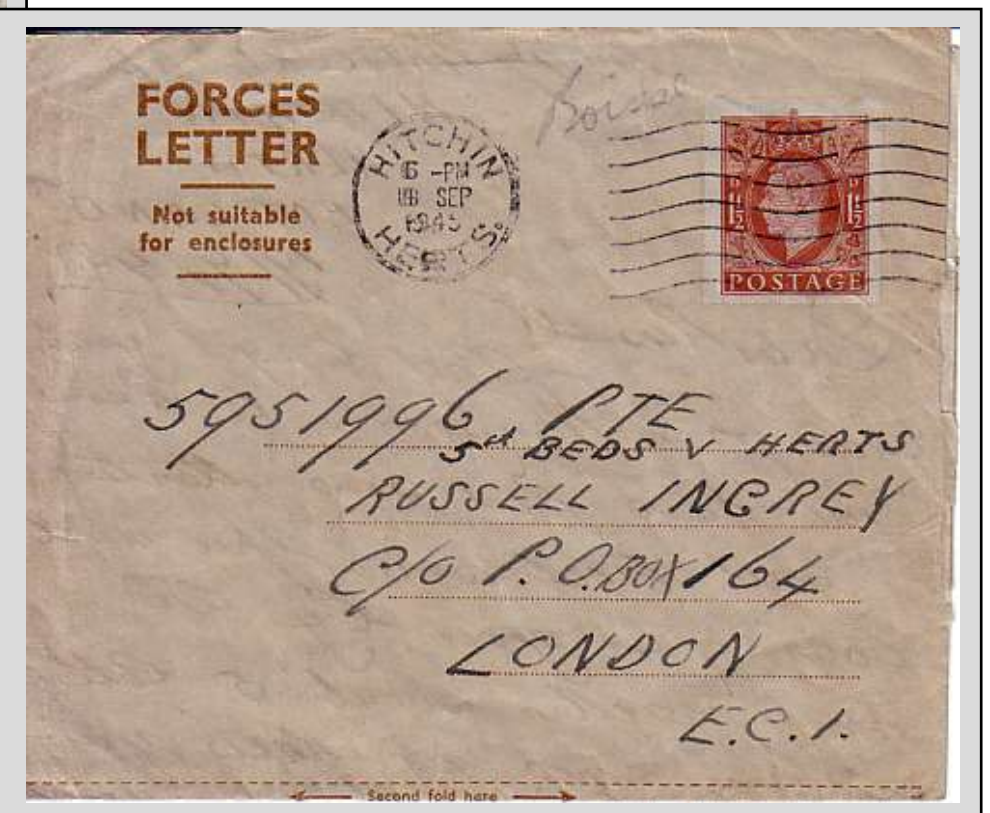 FORCES
LETTER
Not suitable
for enclosures
HITCHIN
6 -PM
SEP
1945
HERTS.
1½ 1½
POSTAGE
5951996 PTE
5th BEDS & HERTS
RUSSELL INGREY
C/O P.O. BOX 164
LONDON
E.C.1.
Second fold here